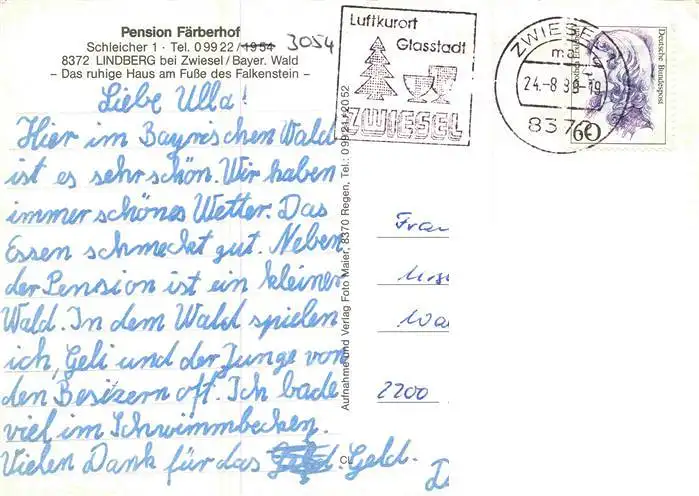 Pension Färberhof
Schleicher 1 · Tel. 0 99 22 / 1954 3054
8372 LINDBERG bei Zwiesel / Bayer. Wald
– Das ruhige Haus am Fuße des Falkenstein –
Liebe Ulla!
Hier im Bayrischen Wald
ist es sehr schön. Wir haben
immer schönes Wetter. Das
Essen schmeckt gut. Neben
der Pension ist ein kleiner
Wald. In dem Wald spielen
ich, Geli und der Junge von
den Besizern oft. Ich bade
viel im Schwimmbecken.
Vielen Dank für das Geld.
Aufnahme und Verlag Foto Maier, 8370 Regen, Tel.: 0 99 21 / 20 52
CL
Luftkurort
Glasstadt
ZWIESEL
ZWIESEL
24.-8.8
-19
8372
Deutsche Bundespost
60
Frau
2200